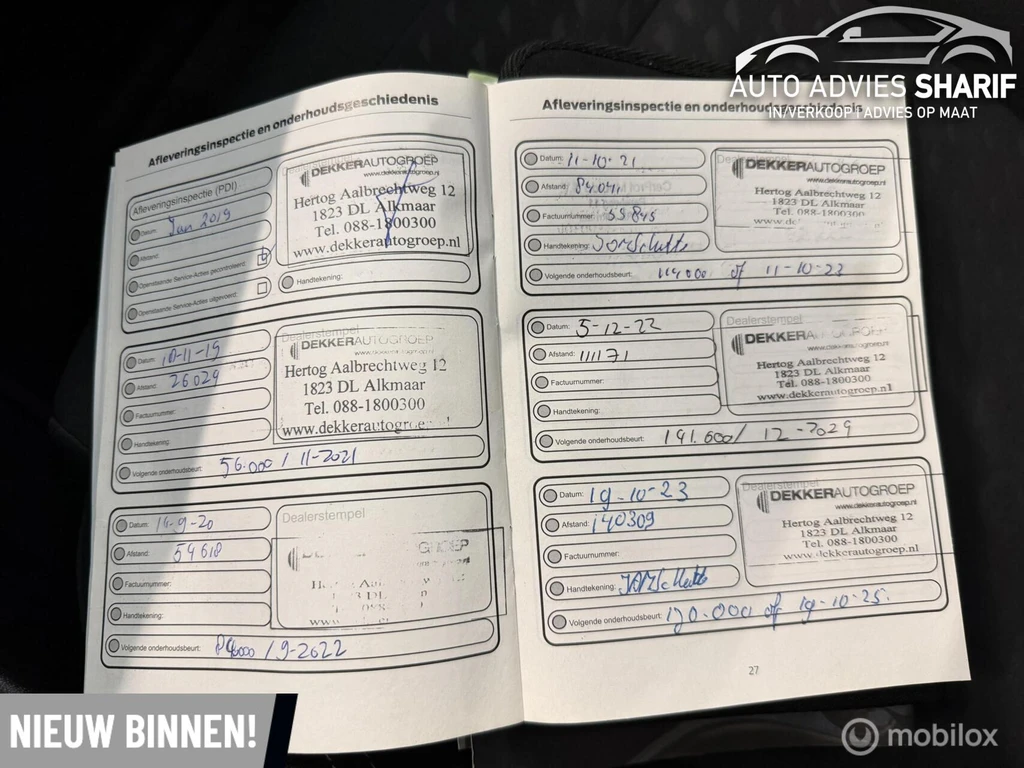 AUTO ADVIES SHARIF
IN/VERKOOP | ADVIES OP MAAT
Afleveringsinspectie en onderhoudsgeschiedenis
Afleveringsinspectie (PDI)
Datum: Jan 2019
Afstand:
Openstaande Service-Acties gecontroleerd:
Openstaande Service-Acties uitgevoerd:
DEKKERAUTOGROEP
www.dekkerautogroep.nl
Hertog Aalbrechtweg 12
1823 DL Alkmaar
Tel. 088-1800300
www.dekkerautogroep.nl
Handtekening:
Datum: 18-11-19
Afstand: 26029
Factuurnummer:
Handtekening:
Volgende onderhoudsbeurt: 56.000 / 11-2021
Dealerstempel
DEKKERAUTOGROEP
Hertog Aalbrechtweg 12
1823 DL Alkmaar
Tel. 088-1800300
www.dekkerautogroep
Datum: 14-9-20
Afstand: 54618
Factuurnummer:
Handtekening:
Volgende onderhoudsbeurt: 84000 / 9-2022
Dealerstempel
Afleveringsinspectie en onderhoudsgeschiedenis
Datum: 11-10-21
Afstand: 84041
Factuurnummer: 55845
Handtekening:
Volgende onderhoudsbeurt: 114000 of 11-10-23
DEKKERAUTOGROEP
www.dekkerautogroep.nl
Hertog Aalbrechtweg 12
1823 DL Alkmaar
Tel. 088-1800300
Datum: 5-12-22
Afstand: 111171
Factuurnummer:
Handtekening:
Volgende onderhoudsbeurt: 141.600 / 12-2029
Dealerstempel
DEKKERAUTOGROEP
www.dekkerautogroep.nl
Hertog Aalbrechtweg 12
1823 DL Alkmaar
Tel. 088-1800300
www.dekkerautogroep.nl
Datum: 19-10-23
Afstand: 140309
Factuurnummer:
Handtekening:
Volgende onderhoudsbeurt: 170.000 of 19-10-25.
Dealerstempel
DEKKERAUTOGROEP
www.dekkerautogroep.nl
Hertog Aalbrechtweg 12
1823 DL Alkmaar
Tel. 088-1800300
www.dekkerautogroep.nl
27
NIEUW BINNEN!
mobilox